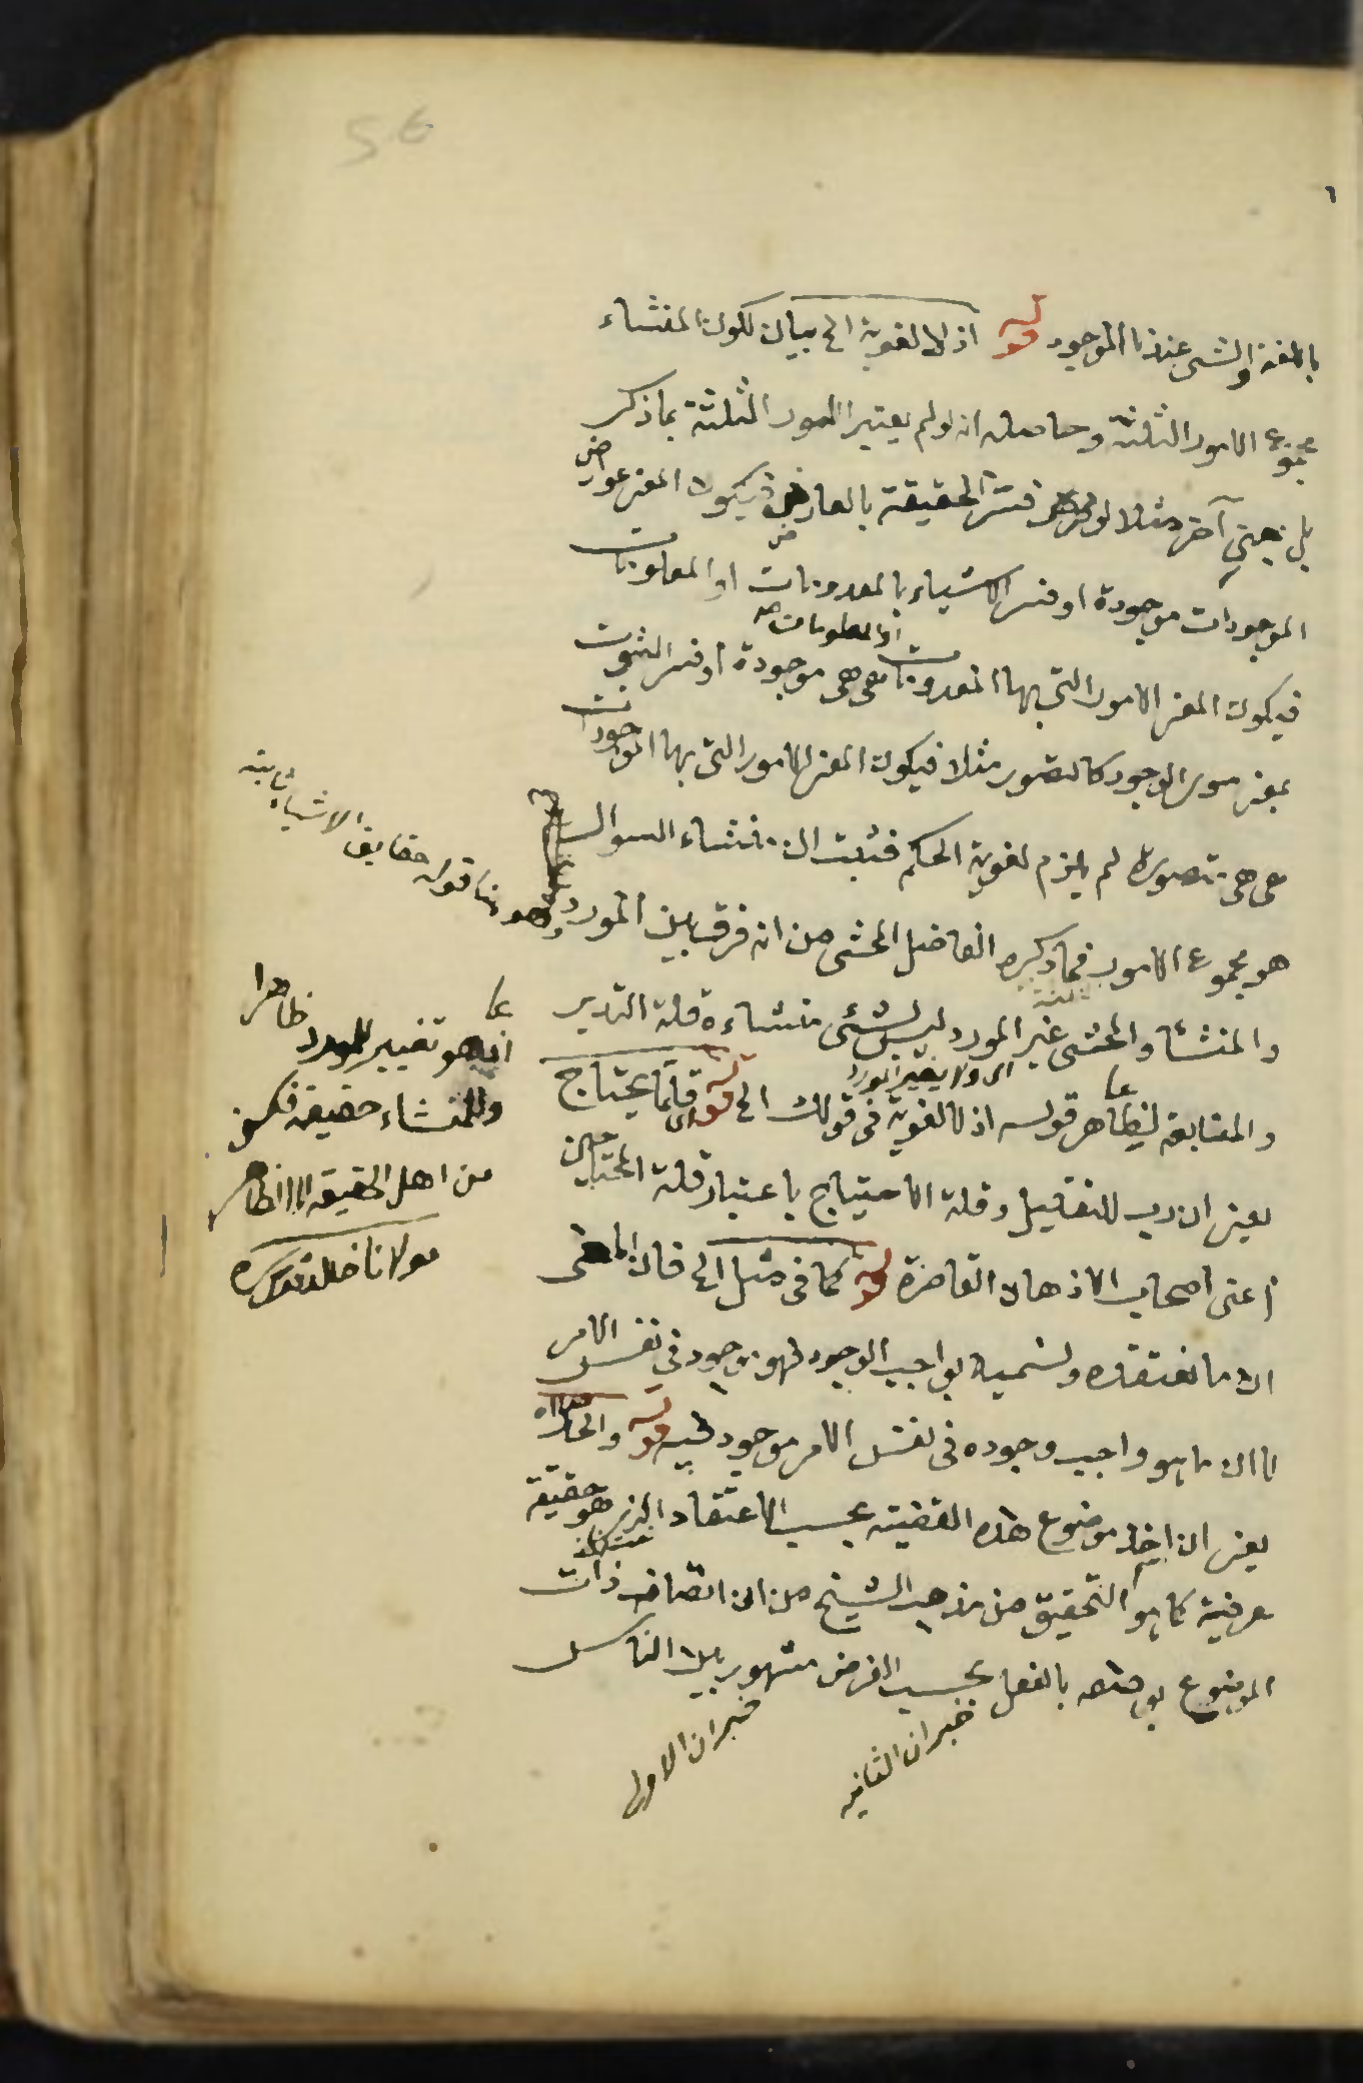 56
بالمعنى والشئ عندنا الموجود قوله اذ لا لغوية الخ بيان لكون المنشاء
مجموع الامور الثلثة وحاصله انه لو لم يعتبر الامور الثلثة بما ذكر
بل بمعنى آخر مثلا لو فسر الحقيقة بالعارض فيكون المعنى عوارض
الموجودات موجودة او فسر الاشياء بالمعدومات او المعلومات
فيكون المعنى الامور التى بها المعدومات او المعلومات هى هى موجودة او فسر الثبوت
بمعنى سوى الوجود كالتصور مثلا فيكون المعنى الامور التى بها الموجودات
هى هى متصورة لم يلزم لغوية الحكم فثبت ان منشاء السوال
هو مجموع الامور الثلثة فما ذكره الفاضل المحشى من انه فرق بين المورد
والمنشأ والمحشى غير المورد ليس بشئ منشاءه قلة التدبر
اى ولا يغير المورد
والمتابعة لظاهر قوله اذ لا لغوية فى قولك الخ قوله قلما يحتاج
يعنى ان رب للتقليل وقلة الاحتياج باعتبار قلة المحتاجين
اعنى اصحاب الاذهان القاصرة قوله كما فى مثل الخ فان المعنى
ان ما نعتقده ونسميه بواجب الوجود فهو موجود فى نفس الامر
لا ان ما هو واجب وجوده فى نفس الامر موجود فيه قوله
يعنى ان اخذ موضوع هذه القضية بحسب الاعتقاد الذى هو حقيقة
عرفية كما هو التحقيق من مذهب الشيخ من ان اتصاف ذات
الموضوع بوصفه بالفعل بحسب الفرض مشهور بين الناس
خبر ان الثانية
خبر ان الاولى
وهو هنا قوله حقايق الاشياء ثابتة
هو تغيير للمورد ظاهرا
والمنشاء حقيقة فكن
من اهل الحقيقة لا الظاهر
مولانا